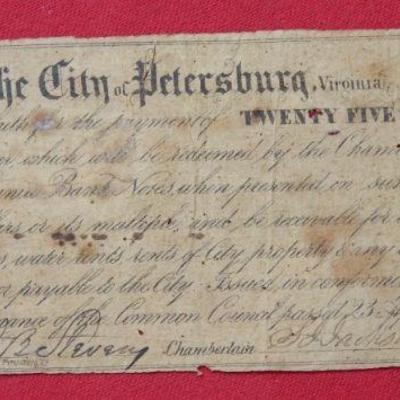 he City of Petersburg, Virginia,
for the payment of TWENTY FIVE
which will be redeemed by the Cham
Bank Notes, when presented in sum
or its multiple, and be receivable for
water rents, rents of City property & any
or payable to the City. Issued in conform
of the Common Council passed 23
Chamberlain